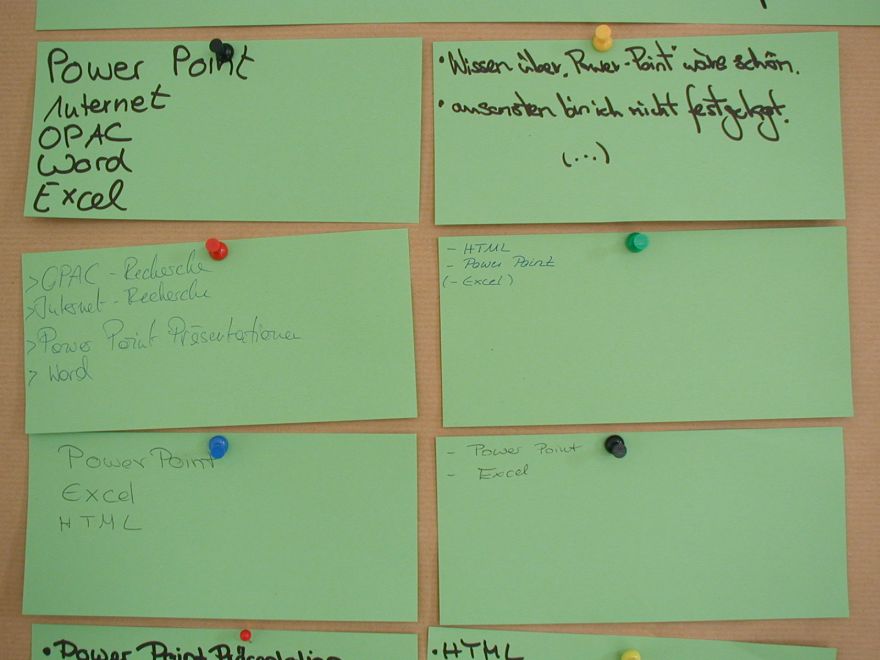 Power Point
Internet
OPAC
Word
Excel
• Wissen über „Power-Point" wäre schön.
• ansonsten bin ich nicht festgelegt.
(...)
> OPAC - Recherche
> Internet - Recherche
> Power Point Präsentationen
> Word
- HTML
- Power Point
(- Excel)
PowerPoint
Excel
HTML
- Power Point
- Excel
• Power Point Präsentation
• HTML